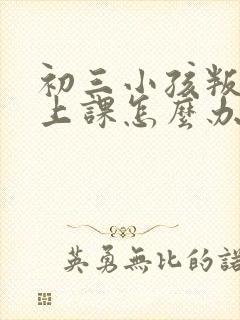 初三小孩叛
上課怎麼办
英勇無比的諾